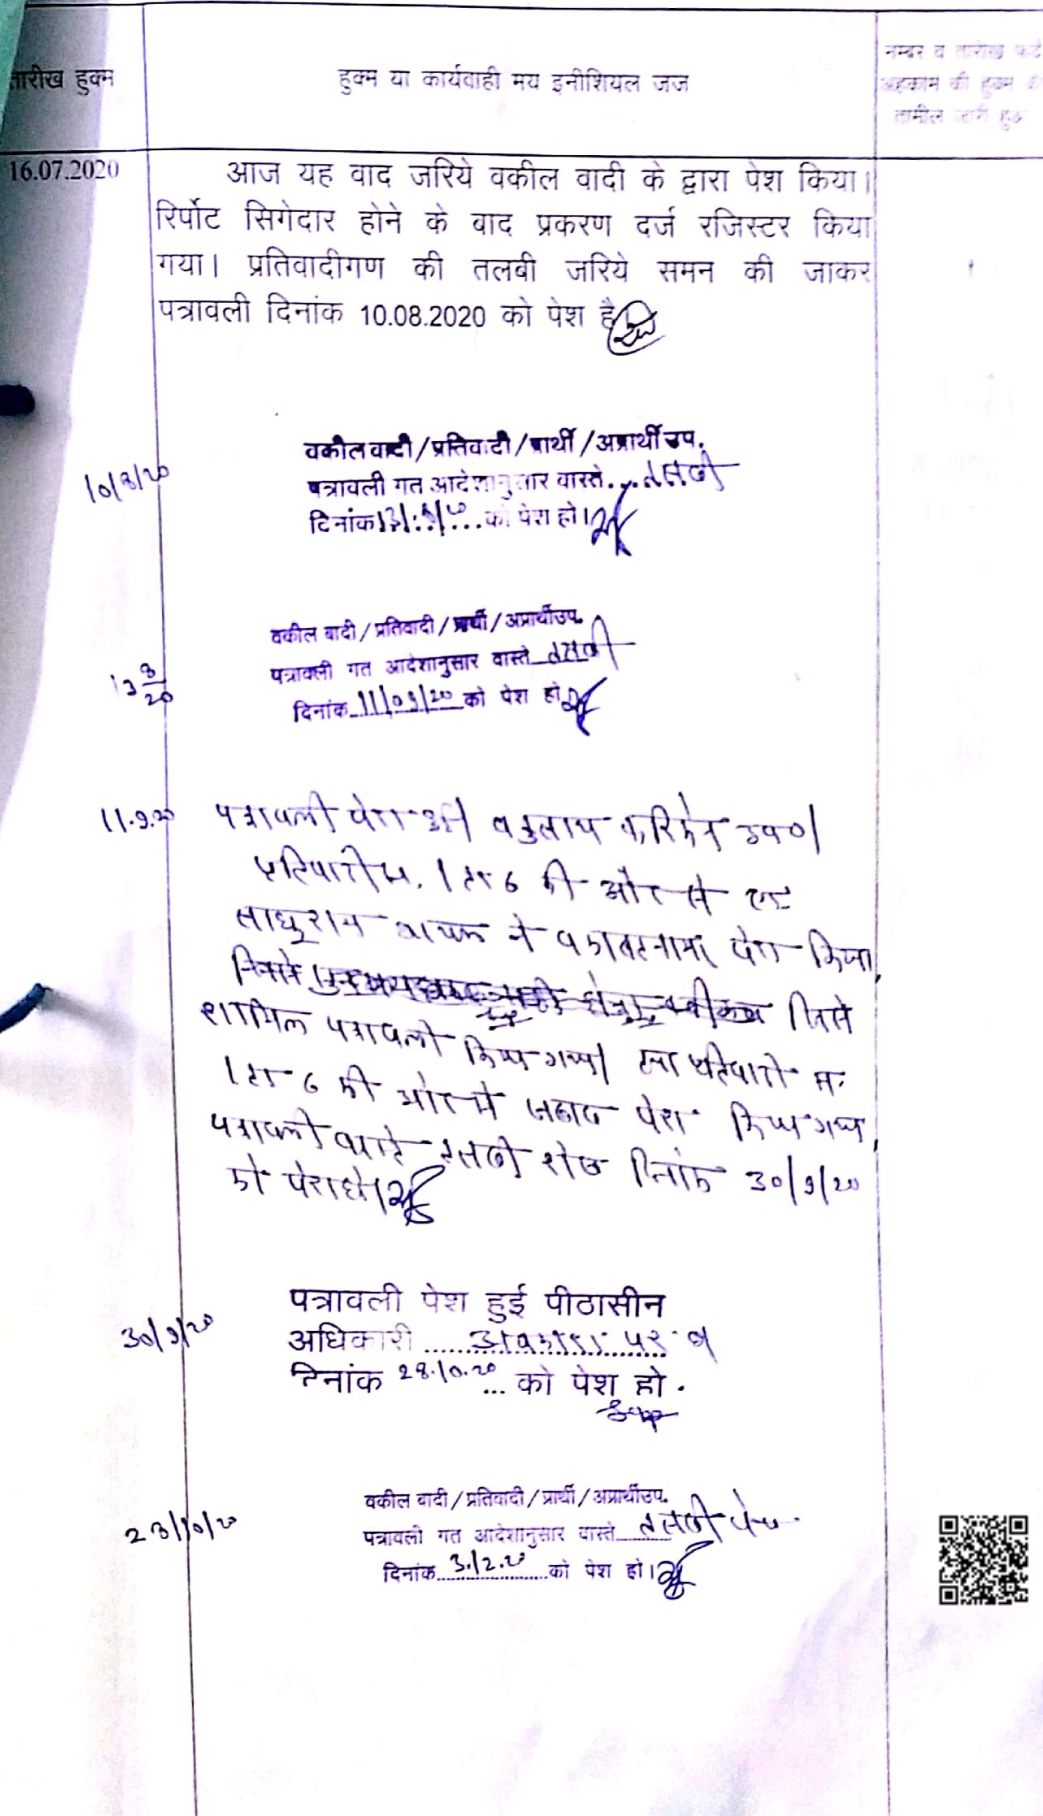 तारीख हुक्म
हुक्म या कार्यवाही मय इनीशियल जज
नम्बर व तारीख
अहकाम की हुक्म
तामील जारी हुक
16.07.2020
आज यह वाद जरिये वकील वादी के द्वारा पेश किया।
रिर्पोट सिगेदार होने के वाद प्रकरण दर्ज रजिस्टर किया
गया। प्रतिवादीगण की तलबी जरिये समन की जाकर
पत्रावली दिनांक 10.08.2020 को पेश है
10/8/20
वकील वादी/प्रतिवादी/प्रार्थी/अप्रार्थी उप.
पत्रावली गत आदेशानुसार वास्ते... तलबी
दिनांक को पेश हो।
13 8/20
वकील वादी/प्रतिवादी/प्रार्थी/अप्रार्थी उप.
पत्रावली गत आदेशानुसार वास्ते तलबी
दिनांक 11/09/20 को पेश हो
11.9.20 पत्रावली पेश हुई
प्रतिवादी स. 1 ता 6 की ओर से
साधुराम ने वकालतनामा पेश किया
जिसे
शामिल पत्रावली किया गया। तथा प्रतिवादी स.
1 ता 6 की ओर से जवाब पेश किया गया
पत्रावली वास्ते तलबी शेष दिनांक 30/9/20
को पेश हो।
30/9/20
पत्रावली पेश हुई पीठासीन
अधिकारी ...... अवकाश पर
दिनांक 28.10.20 ... को पेश हो.
28/10/20
वकील वादी/प्रतिवादी/प्रार्थी/अप्रार्थी उप.
पत्रावली गत आदेशानुसार वास्ते तलबी शेष
दिनांक 3.12.20 को पेश हो।